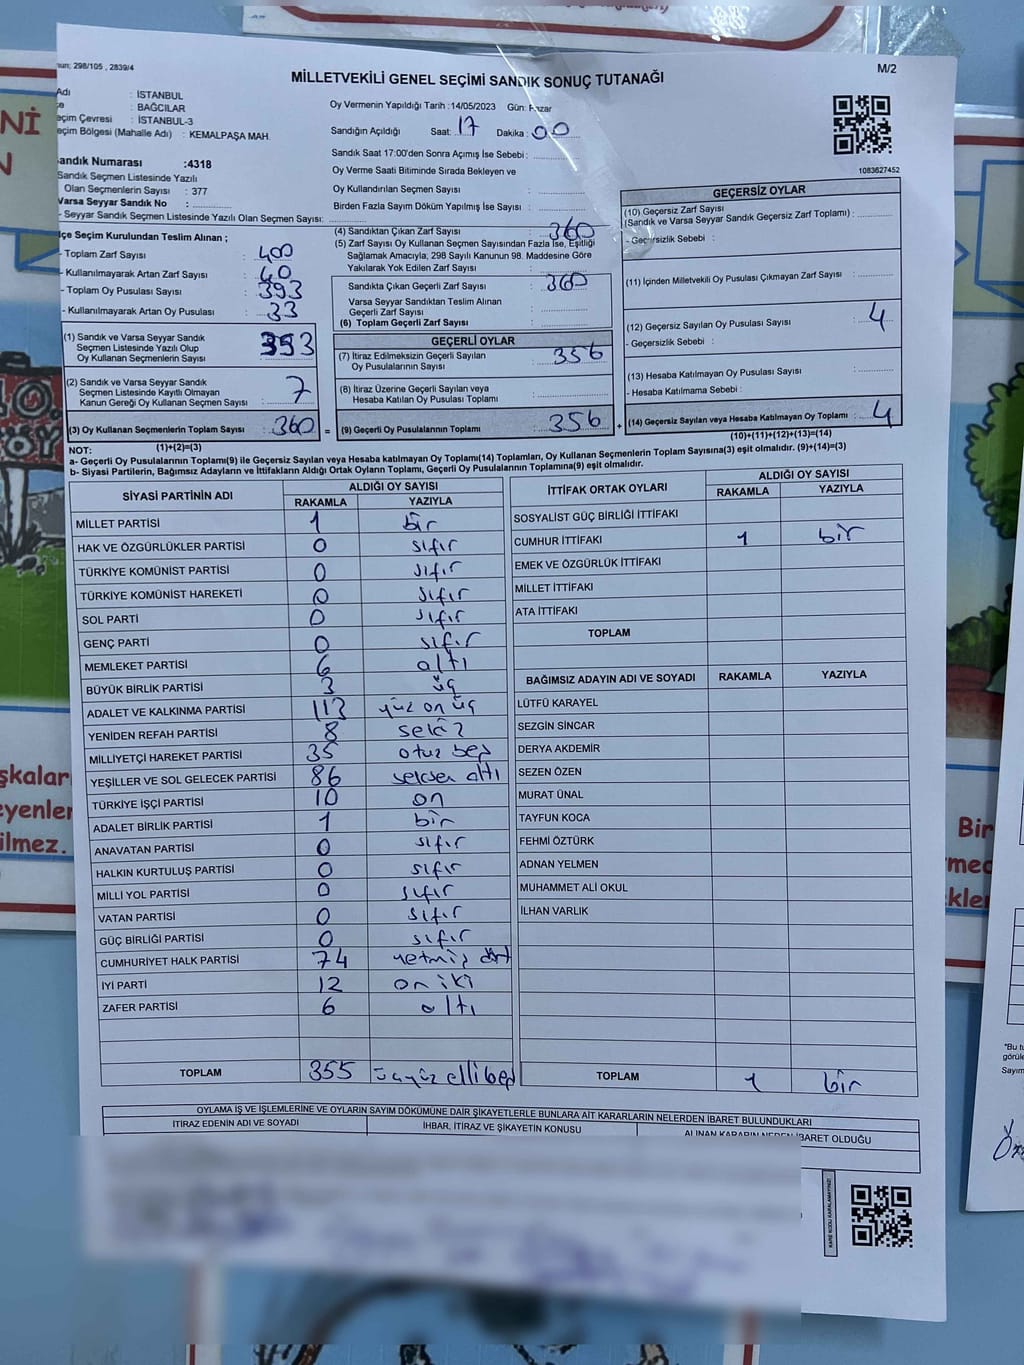 nun; 298/105 , 2839/4
M/2
MİLLETVEKİLİ GENEL SEÇİMİ SANDIK SONUÇ TUTANAĞI
Adı : İSTANBUL
: BAĞCILAR
eçim Çevresi : İSTANBUL-3
eçim Bölgesi (Mahalle Adı) : KEMALPAŞA MAH.
Oy Vermenin Yapıldığı Tarih : 14/05/2023 Gün: Pazar
Sandığın Açıldığı Saat: 17 Dakika : 00
Sandık Saat 17:00'den Sonra Açımış İse Sebebi :
andık Numarası :4318
Sandık Seçmen Listesinde Yazılı
Olan Seçmenlerin Sayısı : 377
Varsa Seyyar Sandık No :
- Seyyar Sandık Seçmen Listesinde Yazılı Olan Seçmen Sayısı:
Oy Verme Saati Bitiminde Sırada Bekleyen ve
Oy Kullandırılan Seçmen Sayısı :
Birden Fazla Sayım Döküm Yapılmış İse Sayısı :
1083627452
lçe Seçim Kurulundan Teslim Alınan ;
- Toplam Zarf Sayısı : 400
- Kullanılmayarak Artan Zarf Sayısı : 40
- Toplam Oy Pusulası Sayısı : 393
- Kullanılmayarak Artan Oy Pusulası : 33
(1) Sandık ve Varsa Seyyar Sandık
Seçmen Listesinde Yazılı Olup
Oy Kullanan Seçmenlerin Sayısı : 353
(2) Sandık ve Varsa Seyyar Sandık
Seçmen Listesinde Kayıtlı Olmayan
Kanun Gereği Oy Kullanan Seçmen Sayısı : 7
(3) Oy Kullanan Seçmenlerin Toplam Sayısı : 360 =
(1)+(2)=(3)
(4) Sandıktan Çıkan Zarf Sayısı : 360
(5) Zarf Sayısı Oy Kullanan Seçmen Sayısından Fazla İse, Eşitliği
Sağlamak Amacıyla; 298 Sayılı Kanunun 98. Maddesine Göre
Yakılarak Yok Edilen Zarf Sayısı :
Sandıkta Çıkan Geçerli Zarf Sayısı : 360
Varsa Seyyar Sandıktan Teslim Alınan
Geçerli Zarf Sayısı :
(6) Toplam Geçerli Zarf Sayısı :
GEÇERLİ OYLAR
(7) İtiraz Edilmeksizin Geçerli Sayılan
Oy Pusulalarının Sayısı : 356
(8) İtiraz Üzerine Geçerli Sayılan veya
Hesaba Katılan Oy Pusulası Toplamı :
(9) Geçerli Oy Pusulalarının Toplamı : 356 +
GEÇERSİZ OYLAR
(10) Geçersiz Zarf Sayısı
(Sandık ve Varsa Seyyar Sandık Geçersiz Zarf Toplamı) :
- Geçersizlik Sebebi :
(11) İçinden Milletvekili Oy Pusulası Çıkmayan Zarf Sayısı :
(12) Geçersiz Sayılan Oy Pusulası Sayısı : 4
- Geçersizlik Sebebi :
(13) Hesaba Katılmayan Oy Pusulası Sayısı :
- Hesaba Katılmama Sebebi :
(14) Geçersiz Sayılan veya Hesaba Katılmayan Oy Toplamı : 4
(10)+(11)+(12)+(13)=(14)
NOT:
a- Geçerli Oy Pusulalarının Toplamı(9) ile Geçersiz Sayılan veya Hesaba katılmayan Oy Toplamı(14) Toplamları, Oy Kullanan Seçmenlerin Toplam Sayısına(3) eşit olmalıdır. (9)+(14)=(3)
b- Siyasi Partilerin, Bağımsız Adayların ve İttifakların Aldığı Ortak Oyların Toplamı, Geçerli Oy Pusulalarının Toplamına(9) eşit olmalıdır.
SİYASİ PARTİNİN ADI ALDIĞI OY SAYISI
RAKAMLA YAZIYLA
MİLLET PARTİSİ 1 bir
HAK VE ÖZGÜRLÜKLER PARTİSİ 0 sıfır
TÜRKİYE KOMÜNİST PARTİSİ 0 sıfır
TÜRKİYE KOMÜNİST HAREKETİ 0 sıfır
SOL PARTİ 0 sıfır
GENÇ PARTİ 0 sıfır
MEMLEKET PARTİSİ 6 altı
BÜYÜK BİRLİK PARTİSİ 3 üç
ADALET VE KALKINMA PARTİSİ 113 yüz on üç
YENİDEN REFAH PARTİSİ 8 sekiz
MİLLİYETÇİ HAREKET PARTİSİ 35 otuz beş
YEŞİLLER VE SOL GELECEK PARTİSİ 86 seksen altı
TÜRKİYE İŞÇİ PARTİSİ 10 on
ADALET BİRLİK PARTİSİ 1 bir
ANAVATAN PARTİSİ 0 sıfır
HALKIN KURTULUŞ PARTİSİ 0 sıfır
MİLLİ YOL PARTİSİ 0 sıfır
VATAN PARTİSİ 0 sıfır
GÜÇ BİRLİĞİ PARTİSİ 0 sıfır
CUMHURİYET HALK PARTİSİ 74 yetmiş dört
İYİ PARTİ 12 on iki
ZAFER PARTİSİ 6 altı
TOPLAM 355 üçyüz ellibeş
İTTİFAK ORTAK OYLARI ALDIĞI OY SAYISI
RAKAMLA YAZIYLA
SOSYALİST GÜÇ BİRLİĞİ İTTİFAKI
CUMHUR İTTİFAKI 1 bir
EMEK VE ÖZGÜRLÜK İTTİFAKI
MİLLET İTTİFAKI
ATA İTTİFAKI
TOPLAM
BAĞIMSIZ ADAYIN ADI VE SOYADI RAKAMLA YAZIYLA
LÜTFÜ KARAYEL
SEZGİN SİNCAR
DERYA AKDEMİR
SEZEN ÖZEN
MURAT ÜNAL
TAYFUN KOCA
FEHMİ ÖZTÜRK
ADNAN YELMEN
MUHAMMET ALİ OKUL
İLHAN VARLIK
TOPLAM 1 bir
OYLAMA İŞ VE İŞLEMLERİNE VE OYLARIN SAYIM DÖKÜMÜNE DAİR ŞİKAYETLERLE BUNLARA AİT KARARLARIN NELERDEN İBARET BULUNDUKLARI
İTİRAZ EDENİN ADI VE SOYADI İHBAR, İTİRAZ VE ŞİKAYETİN KONUSU ALINAN KARARIN NEDEN İBARET OLDUĞU
KARE KODU KARALAMAYINIZ!
Nİ
N
şkalar
eyenler
ilmez.
Bir
med
kler
"Bu tu
görüle
Sayım